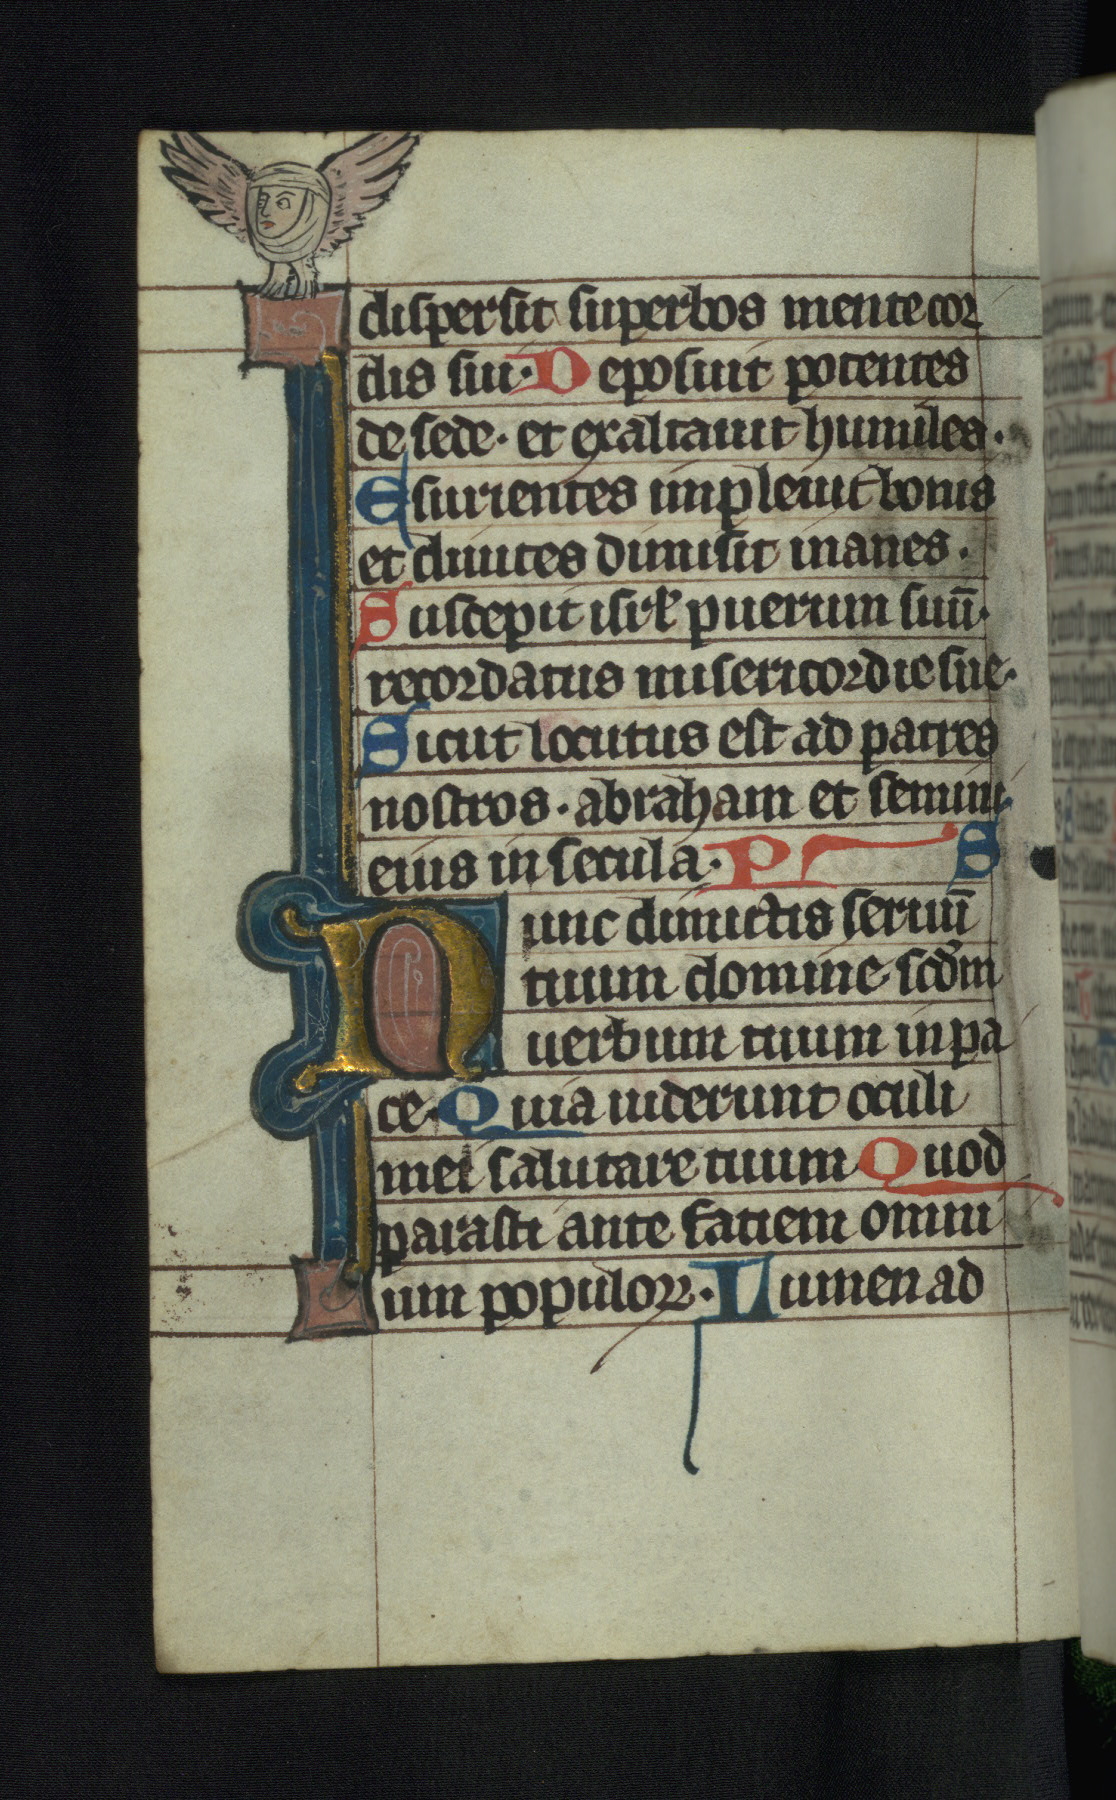 dispersit superbos mente cor
dis sui. Deposuit potentes
de sede. et exaltauit humiles.
Esurientes impleuit bonis
et diuites dimisit inanes.
Suscepit isrl puerum suū.
recordatus misericordie sue.
Sicut locutus est ad patres
nostros. abraham et semini
eius in secula. PS
Nunc dimictis seruū
tuum domine scdm
uerbum tuum in pa
ce. Quia uiderunt oculi
mei salutare tuum Quod
parasti ante faciem omni
um populoꝝ. Lumen ad